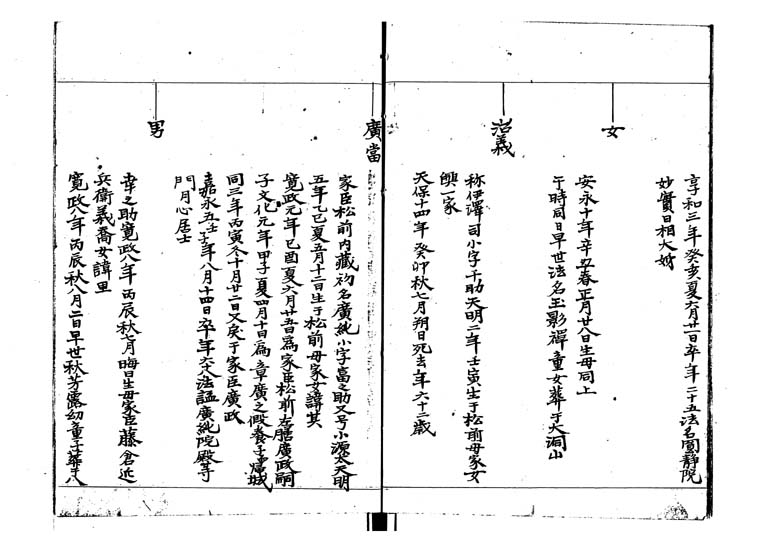 享和三年癸亥夏六月廿一日卒年二十五法名圓靜院
妙實日相大姉
女
安永十年辛丑春正月廿八日生母同上
于時同日早世法名玉影禪童女葬于大洞山
治義
称伊澤司小字千助天明二年壬寅生于松前母家女
興一家
天保十四年癸卯秋七月朔日死去年六十二歳
廣當
家臣松前内藏初名廣純小字富之助又号小源太天明
五年乙巳夏五月十二日生于松前母家女諱其
寛政元年己酉夏六月廿五日爲家臣松前左膳廣政嗣
子文化元年甲子夏四月十日爲章廣之假養子屬城
同三年丙寅冬十月廿二日又戻于家臣廣政
嘉永五壬子年八月十四日卒年六十八法諡廣純院殿寺
門月心居士
男
幸之助寛政八年丙辰秋七月晦日生母家臣藤倉近
兵衛義喬女諱里
寛政八年丙辰秋八月二日早世秋芳露幼童子葬于八